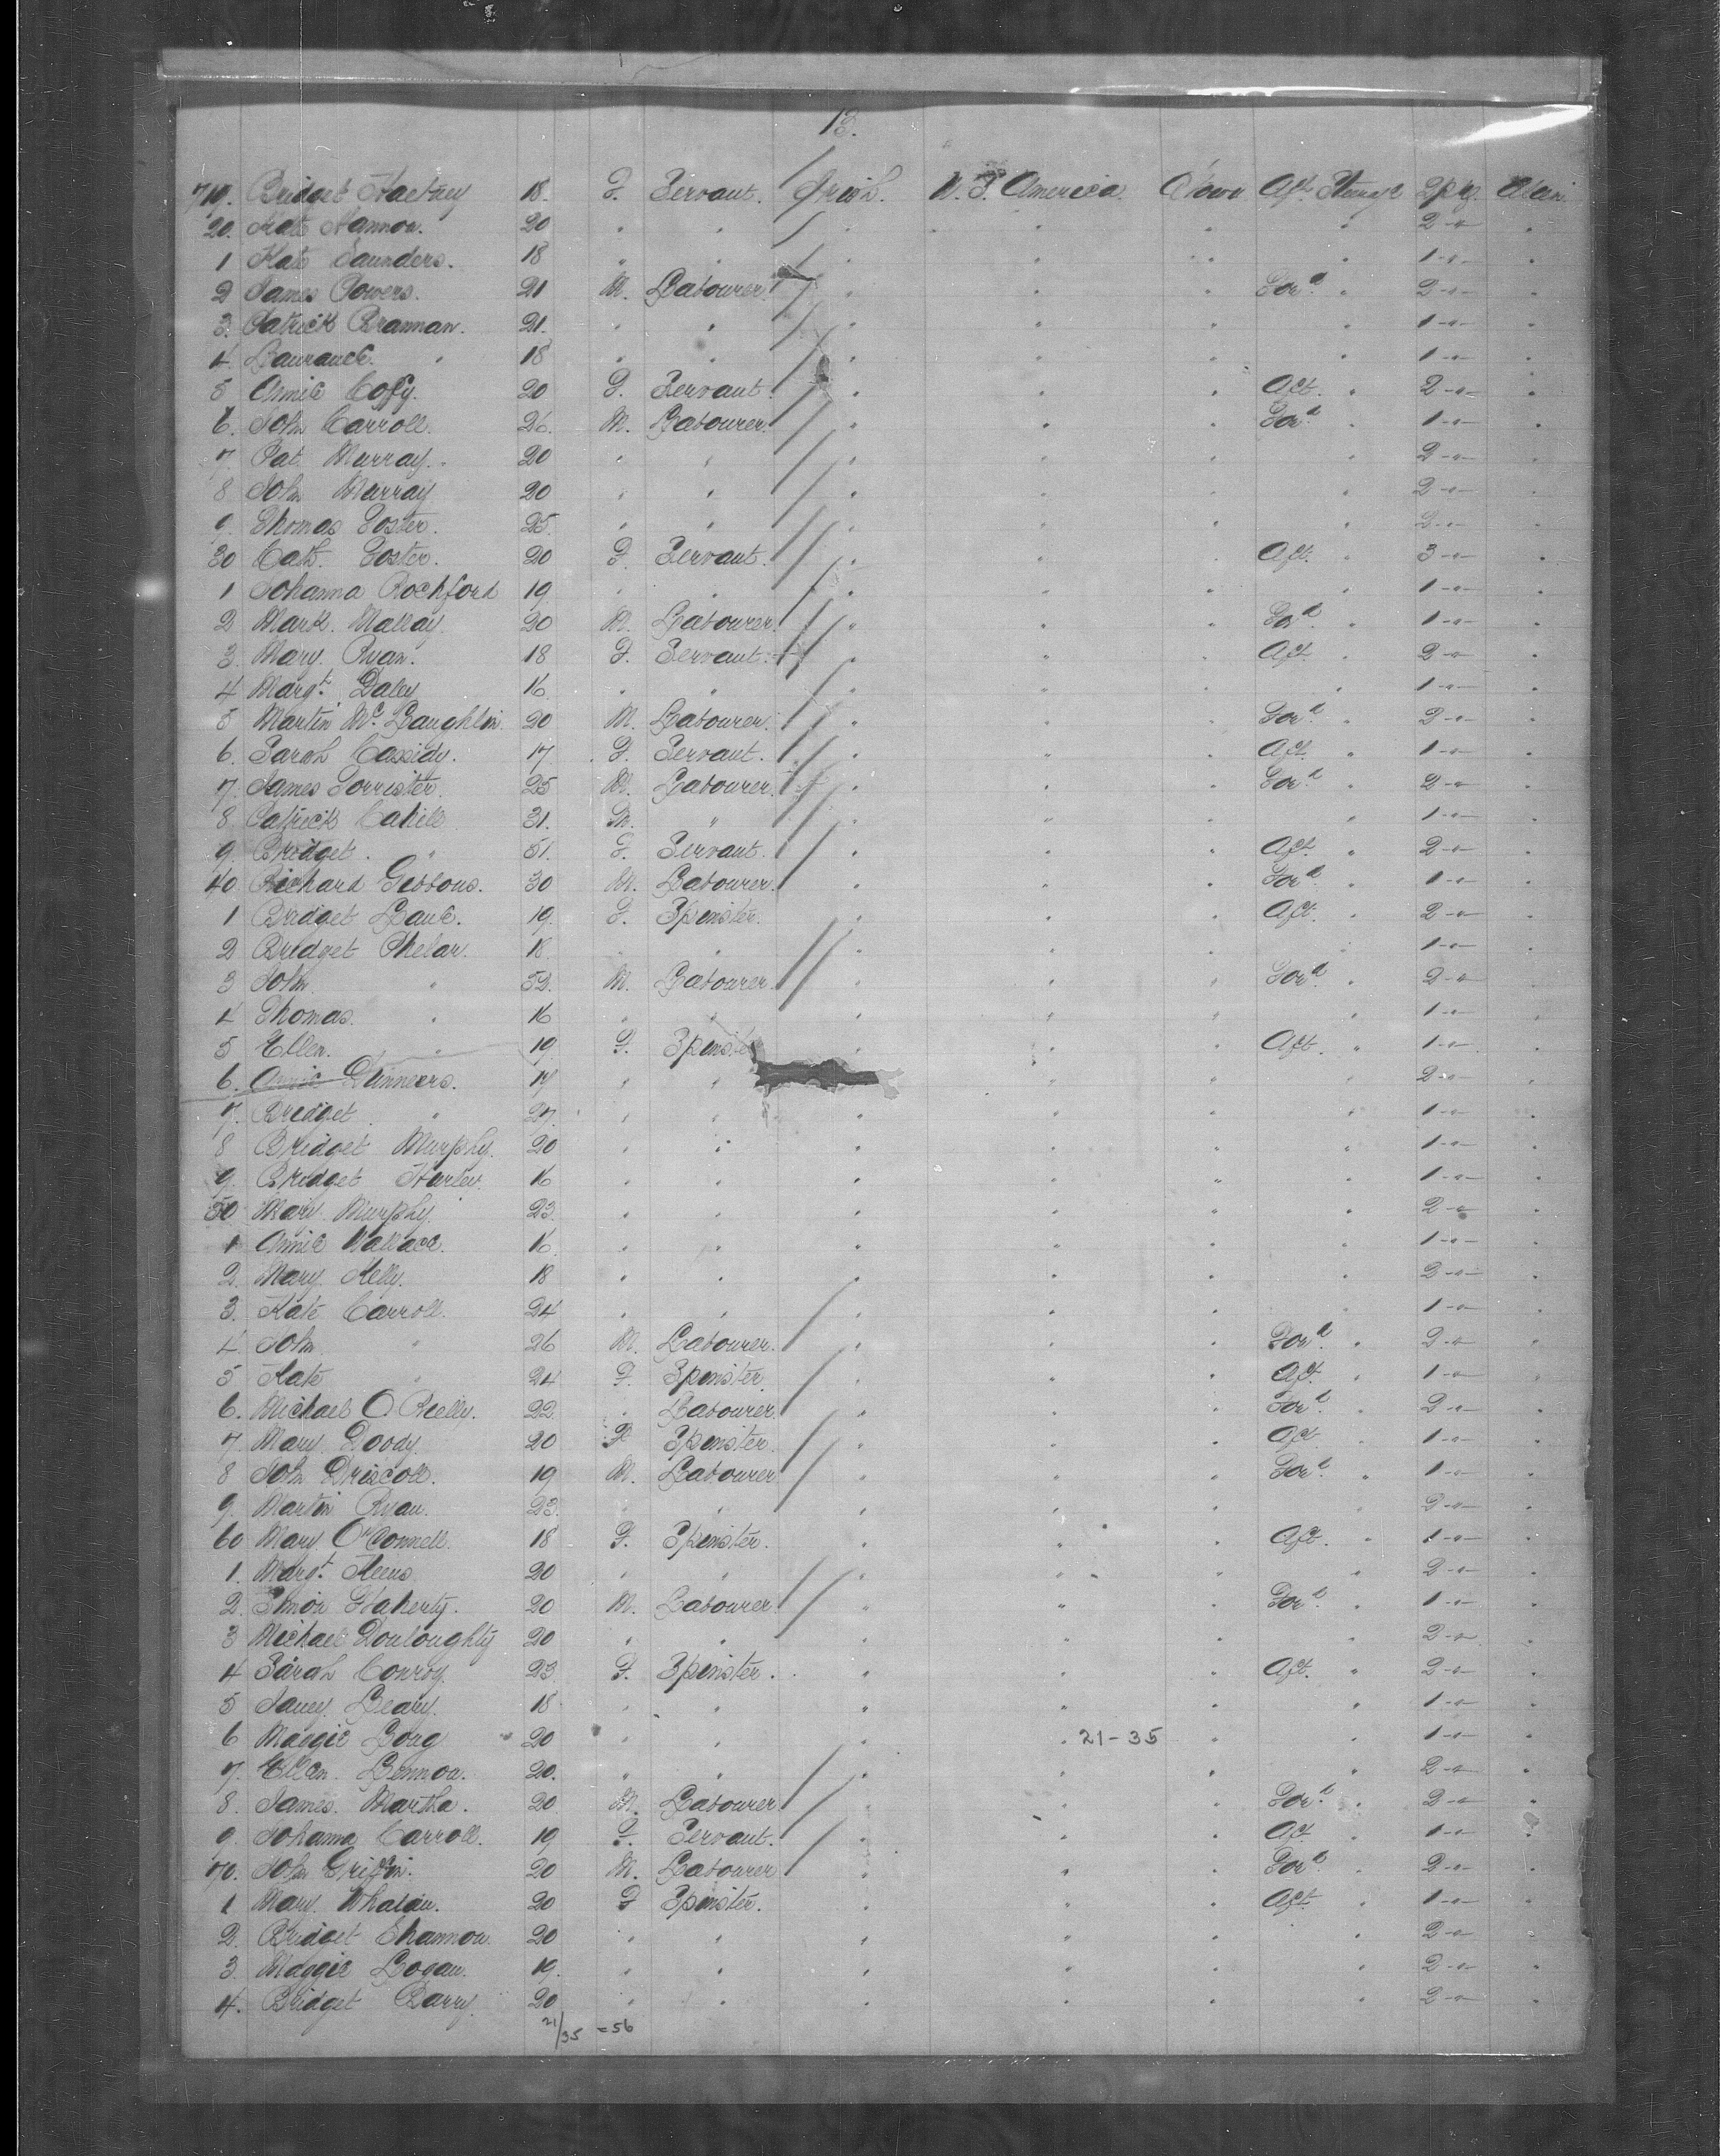 13.
719. Bridget Hackney 18. F. Servant. Irish. U. S. America Q'town Aft. Steerage 2 pkg. Alien
20. Kate Hannon. 20 " " " " " " 2 -"- "
1 Kate Saunders. 18 " " " " " " 1 -"- "
2 James Powers. 21 M. Labourer. " " " For'd. " 2 -"- "
3. Patrick Brannan. 21. " " " " " " 1 -"- "
4. Laurance " 18 " " " " " " 1 -"- "
5 Annie Cofy. 20 F. Servant. " " " Aft. " 2 -"- "
6. John Carroll. 26. M. Labourer. " " " For'd. " 1 -"- "
7. Pat. Murray. 20 " " " " " " 2 -"- "
8 John Murray 20 " " " " " " 2 -"- "
9. Thomas Foster. 25. " " " " " " 2 -"- "
30 Cath. Foster. 20 F. Servant. " " " Aft. " 3 -"- "
1 Johanna Rochford 19 " " " " " " 1 -"- "
2 Mark. Mallay 20 M. Labourer. " " " For'd. " 1 -"- "
3. Mary. Ryan. 18 F. Servant. " " " Aft. " 2 -"- "
4 Margt. Daley 16 " " " " " " 1 -"- "
5 Martin McLaughlin. 20 M. Labourer. " " " For'd. " 2 -"- "
6. Sarah Cassidy. 17 F. Servant. " " " Aft. " 1 -"- "
7. James Forrister. 25 M. Labourer. " " " For'd. " 2 -"- "
8. Patrick Cahill 31. M. " " " " " 1 -"- "
9. Bridget. " 51. F. Servant. " " " Aft. " 2 -"- "
40. Richard Gibbons. 30 M. Labourer. " " " For'd. " 1 -"- "
1 Bridget Lane. 19. F. Spinster. " " " Aft. " 2 -"- "
2 Bridget Phelan. 18. " " " " " " 1 -"- "
3 John. " 52. M. Labourer. " " " For'd. " 2 -"- "
4 Thomas. " 16 " " " " " " 1 -"- "
5 Ellen. " 19 F. Spinster " " " Aft. " 1 -"- "
6. Annie Dinneers. 17 " " " " " 2 -"- "
7. Bridget. " 27. " " " " " " 1 -"- "
8 Bridget Murphy. 20 " " " " " " 1 -"- "
9. Bridget Hurley. 16 " " " " " " 1 -"- "
50 Mary. Murphy. 23. " " " " " " 2 -"- "
1 Annie Wallace. 16. " " " " " " 1 -"- "
2. Mary. Kelly. 18 " " " " " " 2 -"- "
3. Kate Carroll. 24 " " " " " " 1 -"- "
4 John. " 26 M. Labourer. " " " For'd. " 2 -"- "
5 Kate " 24 F. Spinster. " " " Aft. " 1 -"- "
6. Michael O'Reilly. 22. " Labourer. " " " For'd. " 2 -"- "
7. Mary. Doody. 20 F Spinster. " " " Aft " 1 -"- "
8 John Driscoll. 19 M. Labourer " " " For'd. " 1 -"- "
9. Martin Ryan. 23. " " " " " " 2 -"- "
60 Mary O'Connell. 18 F. Spinster. " " " Aft. " 1 -"- "
1. Margt. Keens 20 " " " " " " 2 -"- "
2. Simon Flaherty. 20 M. Labourer. " " " For'd. " 1 -"- "
3 Michael Douloughty 20 " " " " " " 2 -"- "
4 Sarah Conroy. 23 F. Spinster. " " " Aft. " 2 -"- "
5 Janey. Leary. 18 " " " " " " 1 -"- "
6 Maggie Long 20 " " " " 21-35 " " 1 -"- "
7. Ellen. Lennon. 20. " " " " " " 2 -"- "
8. James. Martha. 20 M. Labourer " " " For'd. " 2 -"- "
9. Johanna Carroll. 19 F. Servant. " " " Aft " 1 -"- "
70. John Griffin. 20 M. Labourer " " " For'd. " 2 -"- "
1 Mary. Whalan. 20 F Spinster. " " " Aft. " 1 -"- "
2. Bridget Shannon. 20 " " " " " " 2 -"- "
3. Maggie Logan. 19. " " " " " " 2 -"- "
4. Bridget Barry. 20 " " " " " " 2 -"- "
21/35 = 56